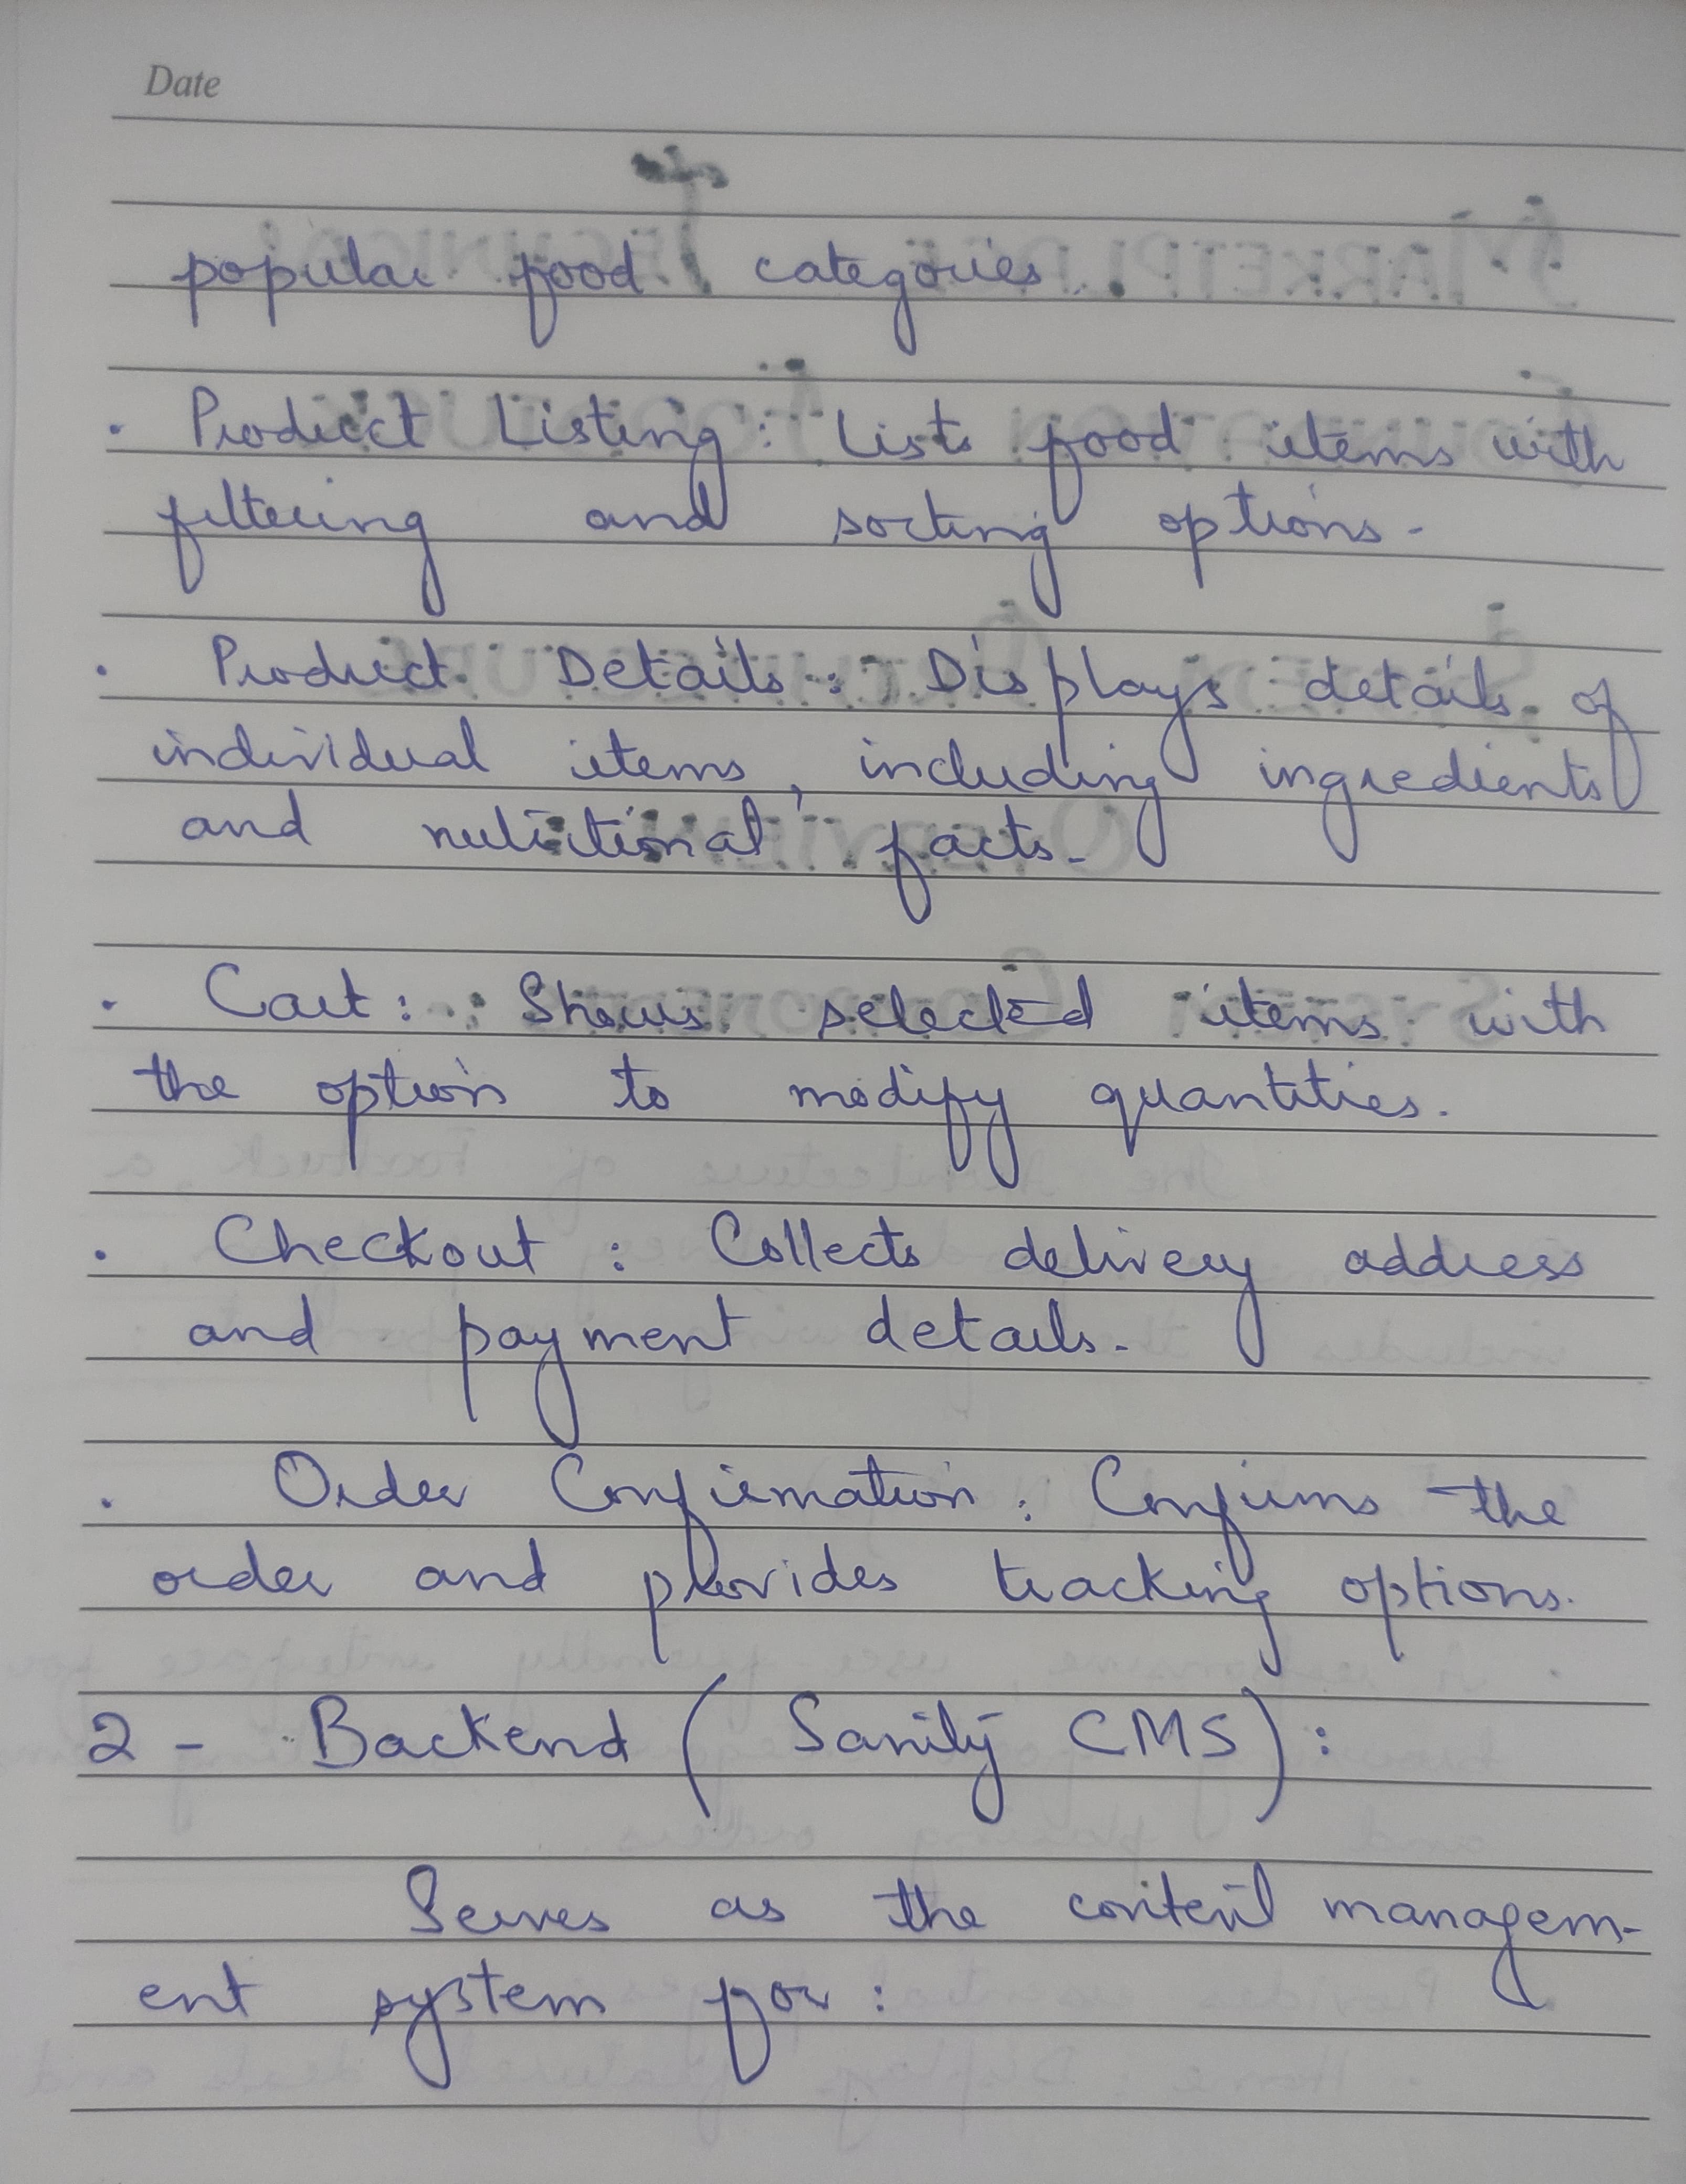 Date
popular food categories.
· Product Listing : Lists food items with
filtering and sorting options.
· Product Details : Displays details of
individual items, including ingredients
and nutritional facts.
· Cart : Shows selected items with
the option to modify quantities.
· Checkout : Collects delivery address
and payment details.
· Order Confirmation : Confirms the
order and provides tracking options.
2 - Backend ( Sanity CMS ) :
Serves as the content managem-
ent system for :